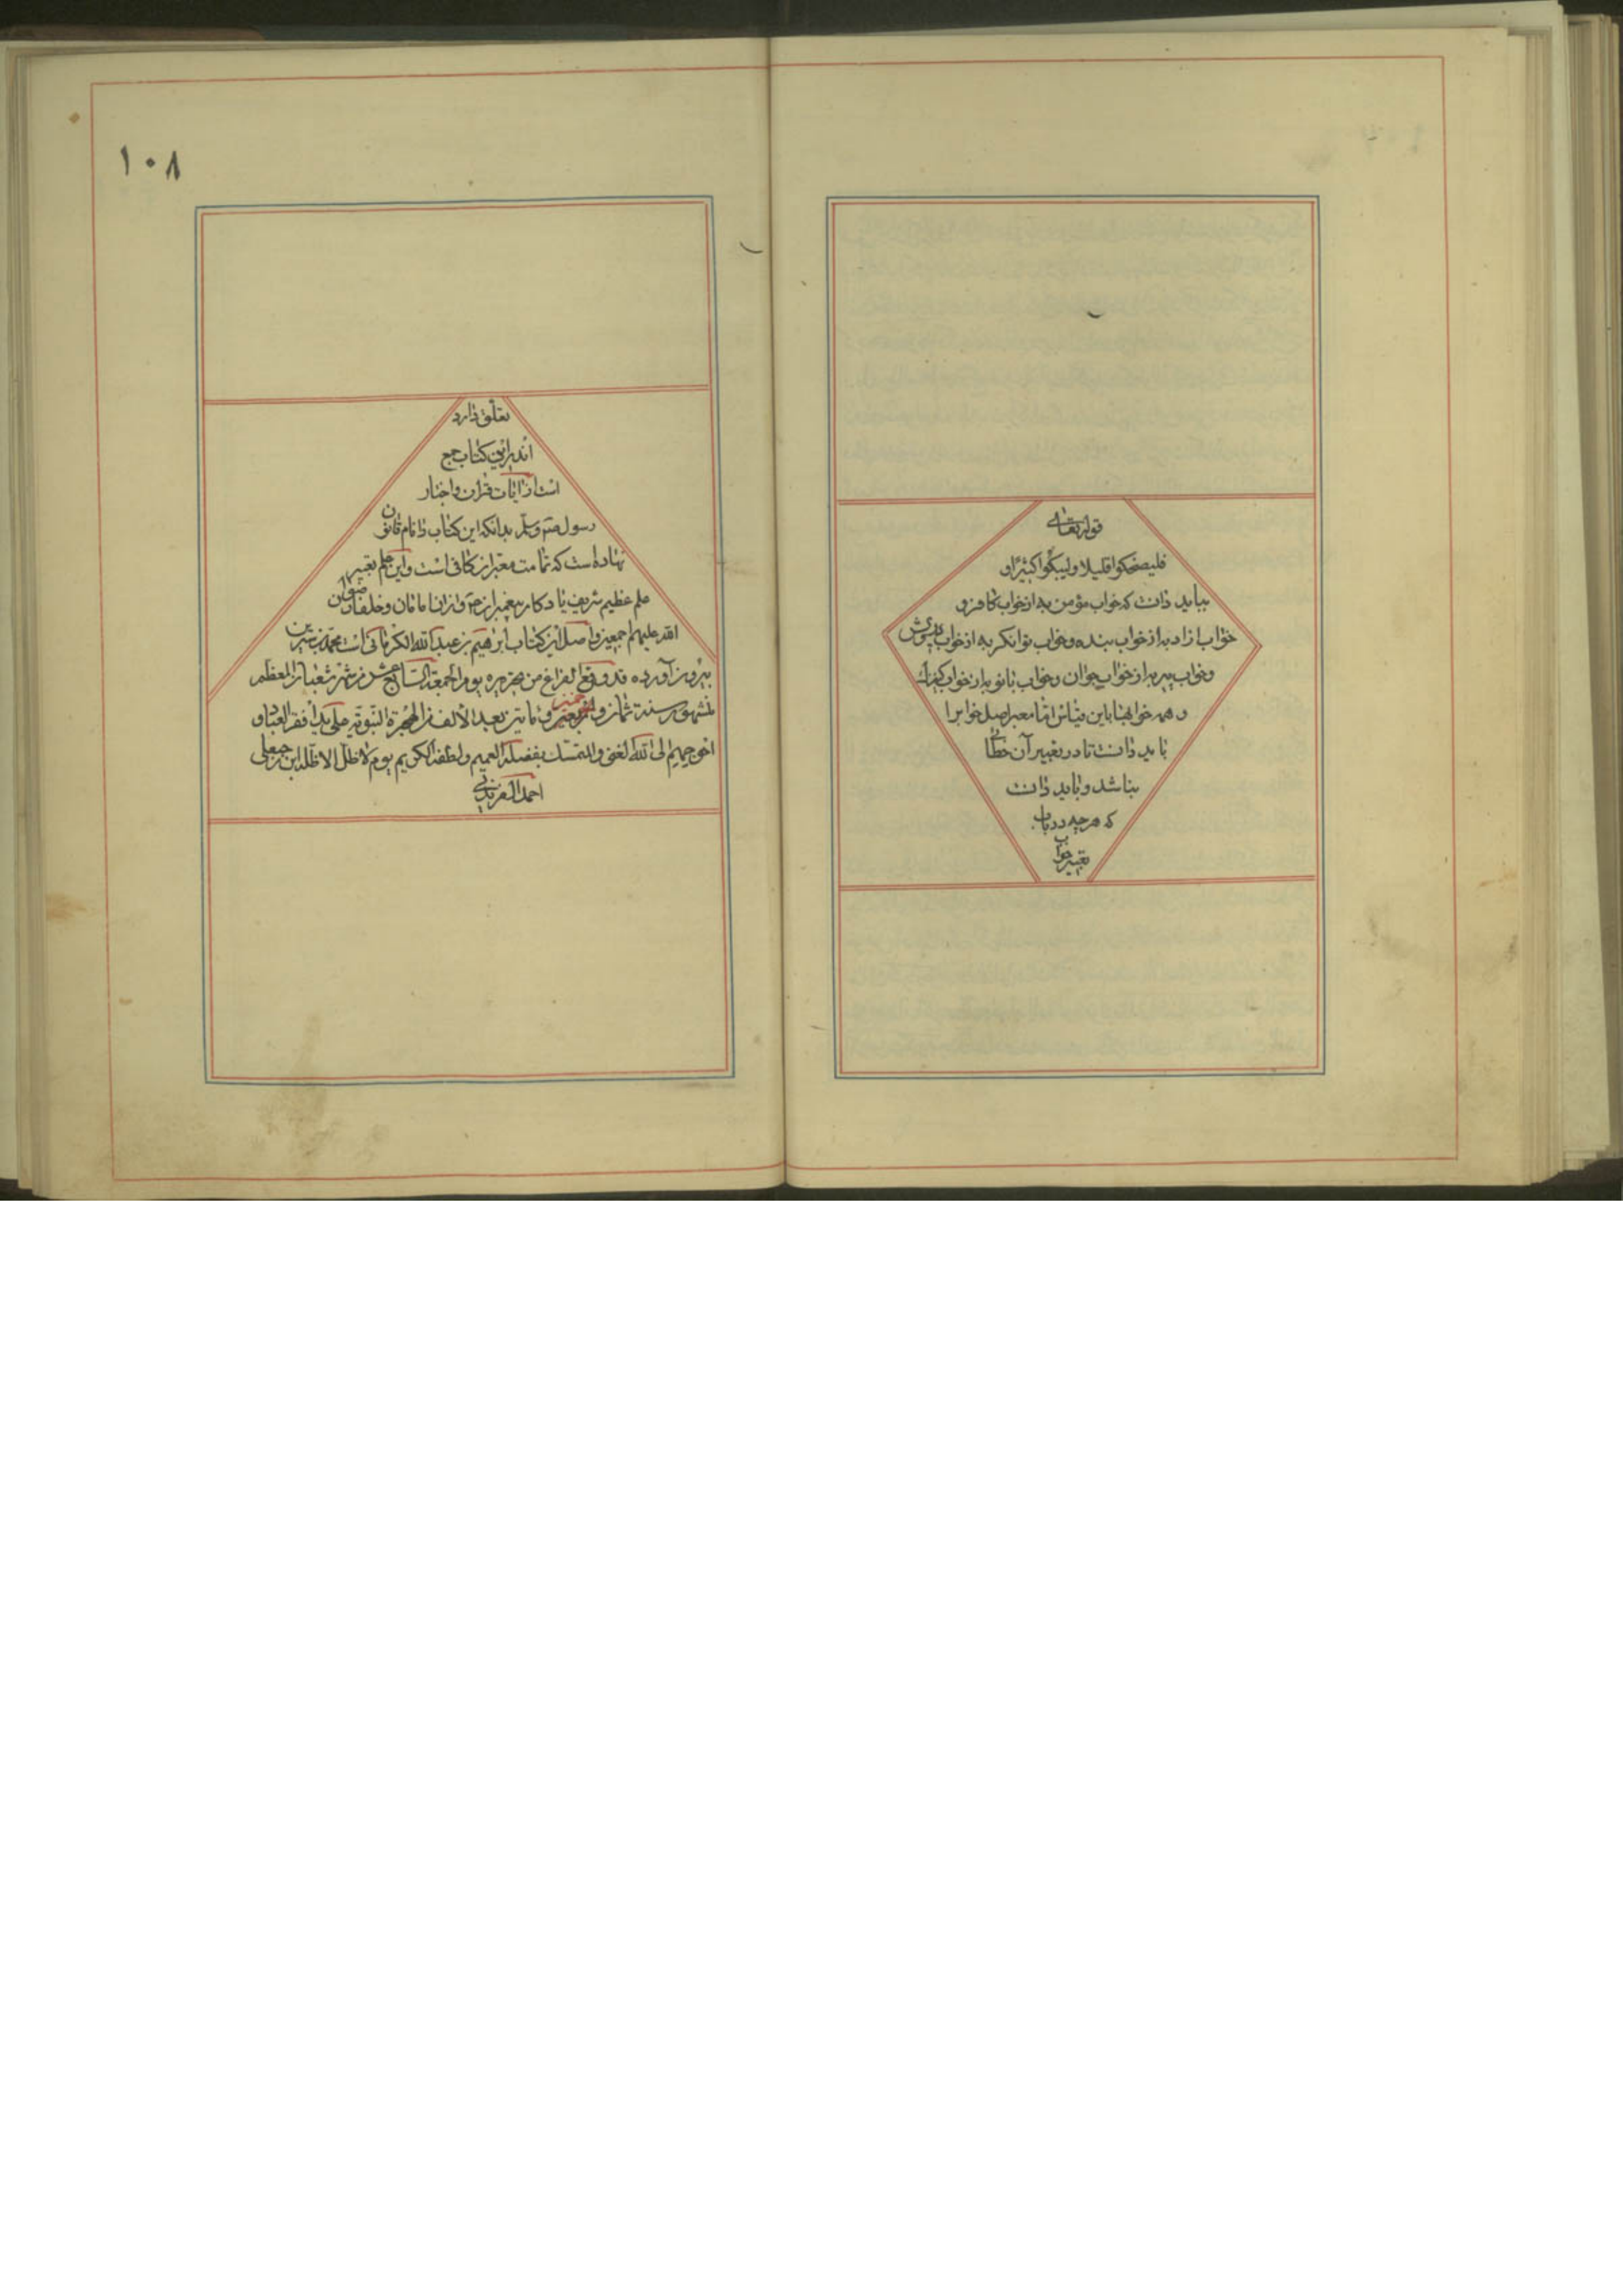 قوله تعالی
فلیضحکوا قلیلا ولیبکوا کثیرا و
بباید دانست که خواب مؤمن به از خواب کافر و
خواب ازاد به از خواب بنده و خواب توانکر به از خواب درویش
و خواب پیر به از خواب جوان و خواب بانو به از خواب کنیزک
و همه خوابها باین قیاس اما معبر اصل خوابرا
باید دانست تا در تعبیر آن خطا
نباشد و باید دانست
که هر چه در باب
تعبیر خواب
۱۰۸
تعلق دارد
اندرین کتاب جمع
است از آیات قرآن و اخبار
رسول صم و سلم بدانکه این کتاب را نام قانون
نهاده است که تمامت معبرانرا کافی است و این علم تعبیر
علم عظیم شریف یادکار پیغمبران و از امامان و خلفا رضوان
الله علیهم اجمعین و اصل این کتاب ابرهیم بن عبدالله الکرمانی است محمد بن سیرین
بیرون آورده قد وقع الفراغ من یوم الجمعة السابع عشر من شهر شعبان المعظم
شهور سنة ثمان و و مایتین بعد الألف من الهجرة النبویة علی ید افقر العباد و
احوجهم الی الله الغنی والمتمسک بفضله العمیم ولطفه الکریم یوم لا ظل الا ظله ابن علی
احمد